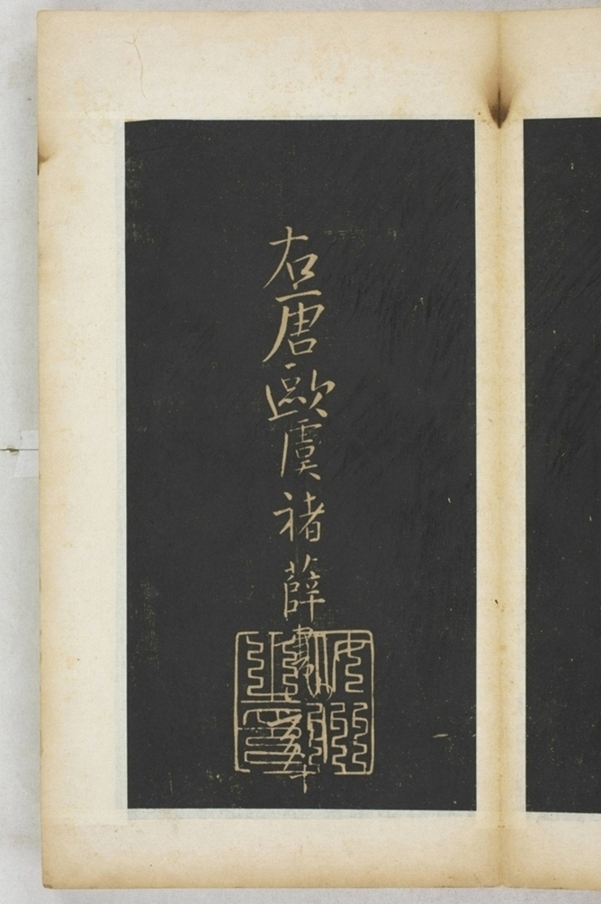 右唐歐虞褚薛書